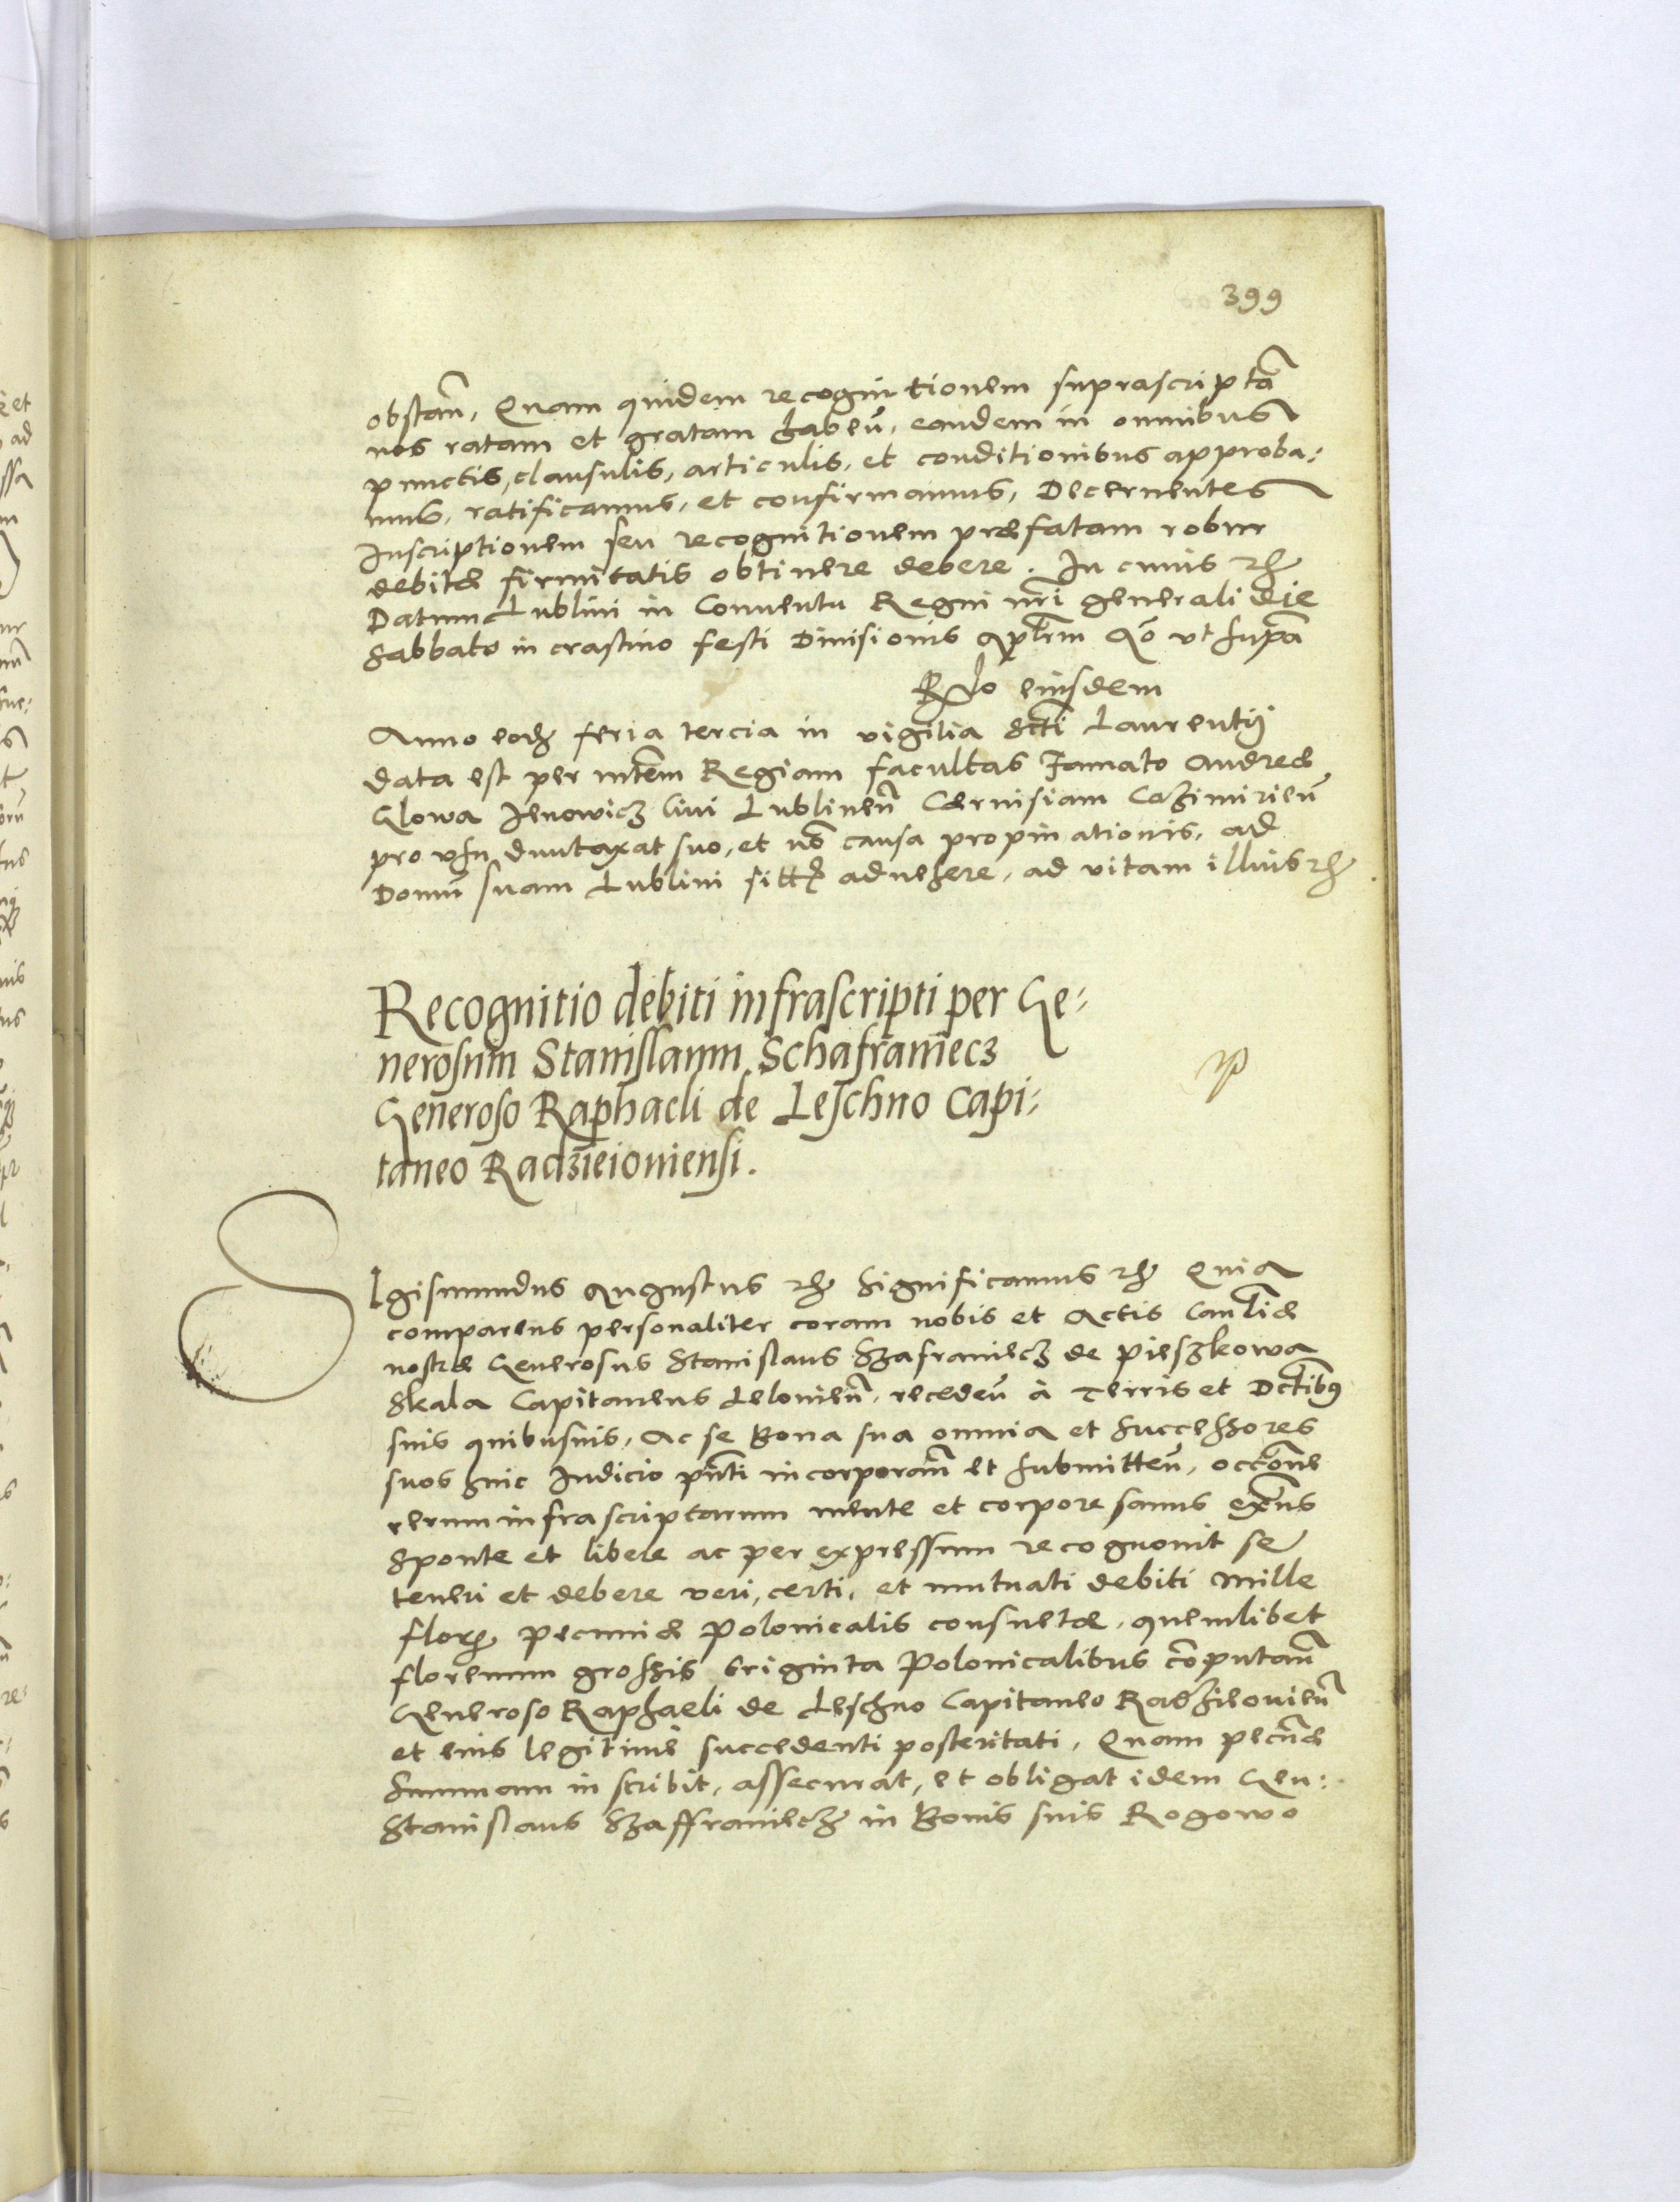 399
obstan̄, Quam quidem recognitionem suprascriptā
nos ratam et gratam haben̄, eandem in omnibus
punctis, clausulis, articulis, et conditionibus approba:
mus, ratificamus, et confirmamus, Decernentes
Inscriptionem seu recognitionem præfatam robur
debitæ firmitatis obtinere debere. In cuius rei
Datum Lublini in Conventu Regni nr̄i generali die
Sabbato in crastino festi Divisionis Ap̄lorum Ao ut supra
R̄lo eiusdem
Anno eodem feria tercia in vigilia Scti Laurentij
data est per mtem Regiam facultas Famato Andreæ
Glowa Jenowicz Civi Lublinen̄ Cærvisiam Cazimirien̄
pro usu duntaxat suo, et nō causa propinationis, ad
Domū suam Lublini advehere, ad vitam illius
Recognitio debiti infrascripti per Ge:
nerosum Stanislaum Schafraniecz
Generoso Raphaeli de Leschno Capi:
taneo Radzieioniensi.
SIgismundus Augustus rc Significamus rc Quia
comparens personaliter coram nobis et Actis Canlriæ
nostræ Generosus Stanislaus Szafraniecz de Pieszkowa
Skala Capitaneus Lelovien̄, recedен̄ à Terris et Dctibus
suis quibusvis, Ac se Bona sua omnia et Successores
suos huic Iudicio pn̄ti incorporan̄ et submitten̄, occone
rerum infrascriptarum mente et corpore sanus exn̄s
Sponte et libere ac per expressum recognovit se
teneri et debere veri, certi, et mutuati debiti Mille
florenos pecuniæ Polonicalis consuetæ, quemlibet
florenum grossis triginta Polonicalibus cōputan̄
Generoso Raphaeli de Leschno Capitaneo Radzieiovien̄
et eius legitime succedenti posteritati, Quam pecun̄æ
Summam inscribit, assecurat, et obligat idem Gen:
Stanislaus Szaffraniecz in Bonis suis Rogowo